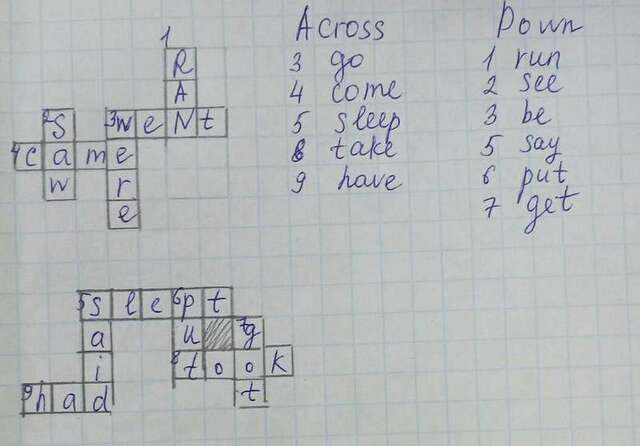 Across
3 go
4 come
5 sleep
8 take
9 have
Down
1 run
2 see
3 be
5 say
6 put
7 get
1
R
A
2S 3w e N t
4c a m e
w r
e
5s l e 6p t
a u 7g
i 8t o o k
9h a d t